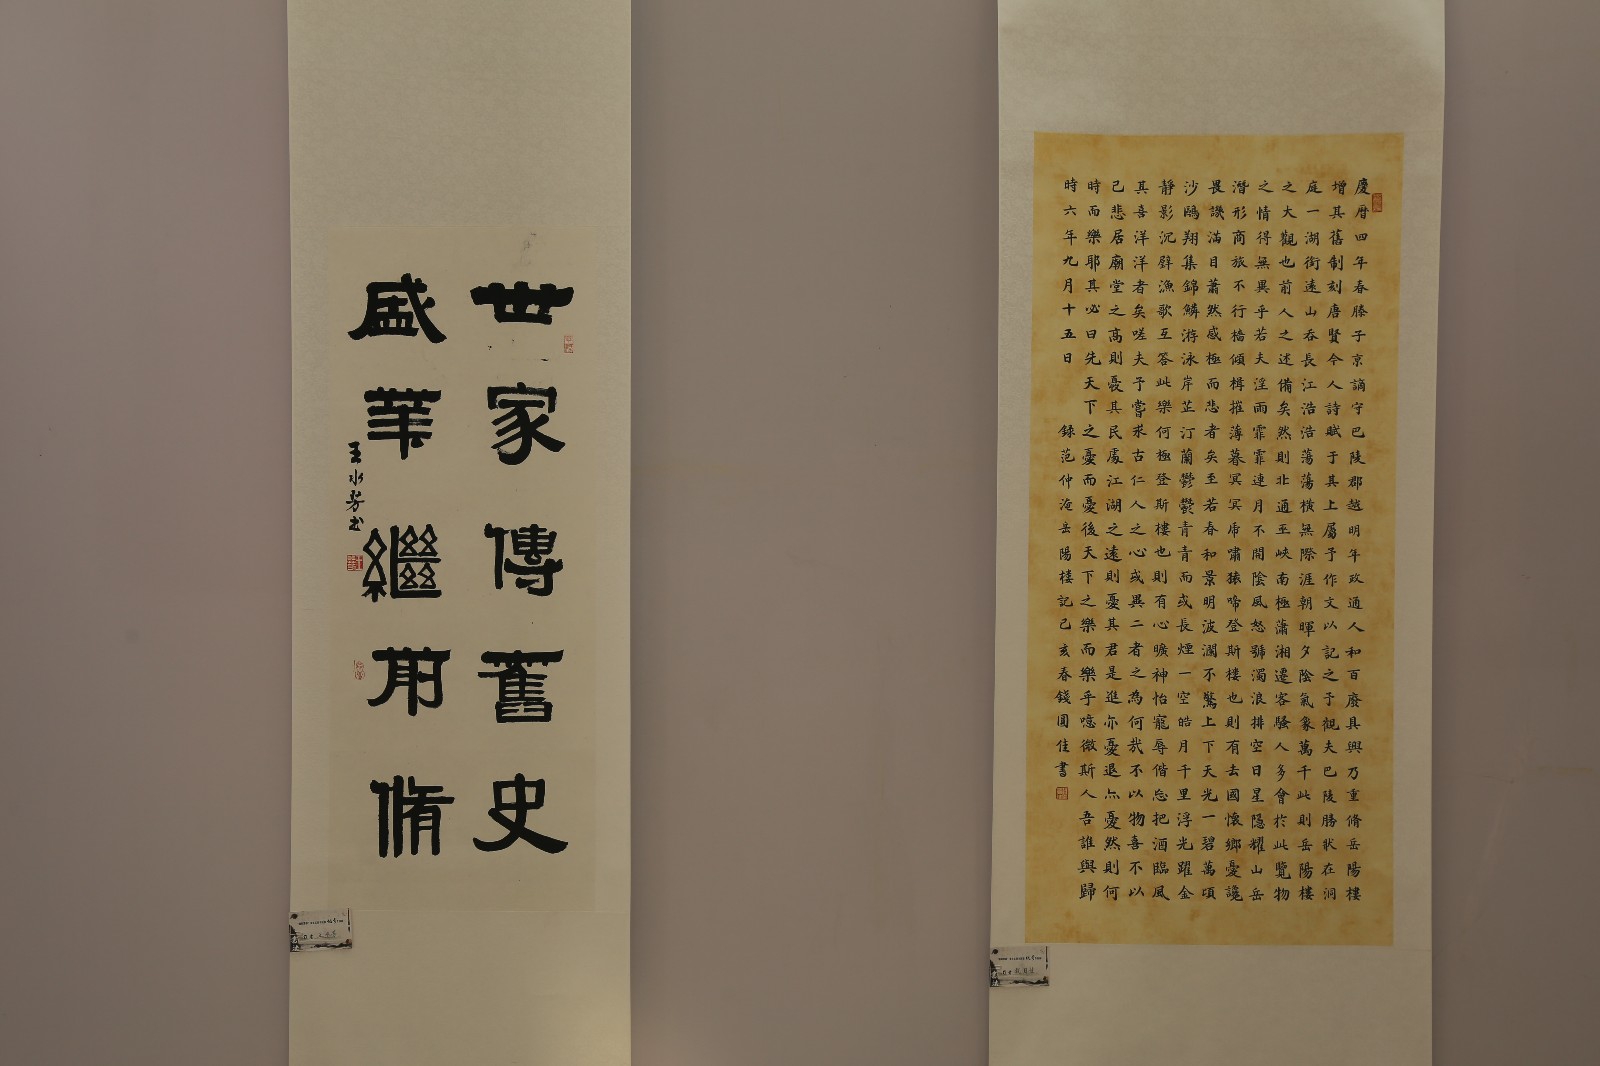 世家傳舊史
盛業繼前脩
王水芳书
慶曆四年春滕子京謫守巴陵郡越明年政通人和百廢具興乃重脩岳陽樓
增其舊制刻唐賢今人詩賦于其上屬予作文以記之予觀夫巴陵勝狀在洞
庭一湖銜遠山吞長江浩浩蕩蕩橫無際涯朝暉夕陰氣象萬千此則岳陽樓
之大觀也前人之述備矣然則北通巫峽南極瀟湘遷客騷人多會於此覽物
之情得無異乎若夫淫雨霏霏連月不開陰風怒號濁浪排空日星隱耀山岳
潛形商旅不行檣傾楫摧薄暮冥冥虎嘯猿啼登斯樓也則有去國懷鄉憂讒
畏譏滿目蕭然感極而悲者矣至若春和景明波瀾不驚上下天光一碧萬頃
沙鷗翔集錦鱗游泳岸芷汀蘭鬱鬱青青而或長煙一空皓月千里浮光躍金
靜影沉璧漁歌互答此樂何極登斯樓也則有心曠神怡寵辱偕忘把酒臨風
其喜洋洋者矣嗟夫予嘗求古仁人之心或異二者之為何哉不以物喜不以
己悲居廟堂之高則憂其民處江湖之遠則憂其君是進亦憂退亦憂然則何
時而樂耶其必曰先天下之憂而憂後天下之樂而樂乎噫微斯人吾誰與歸
時六年九月十五日 錄范仲淹岳陽樓記己亥春錢圓佳書